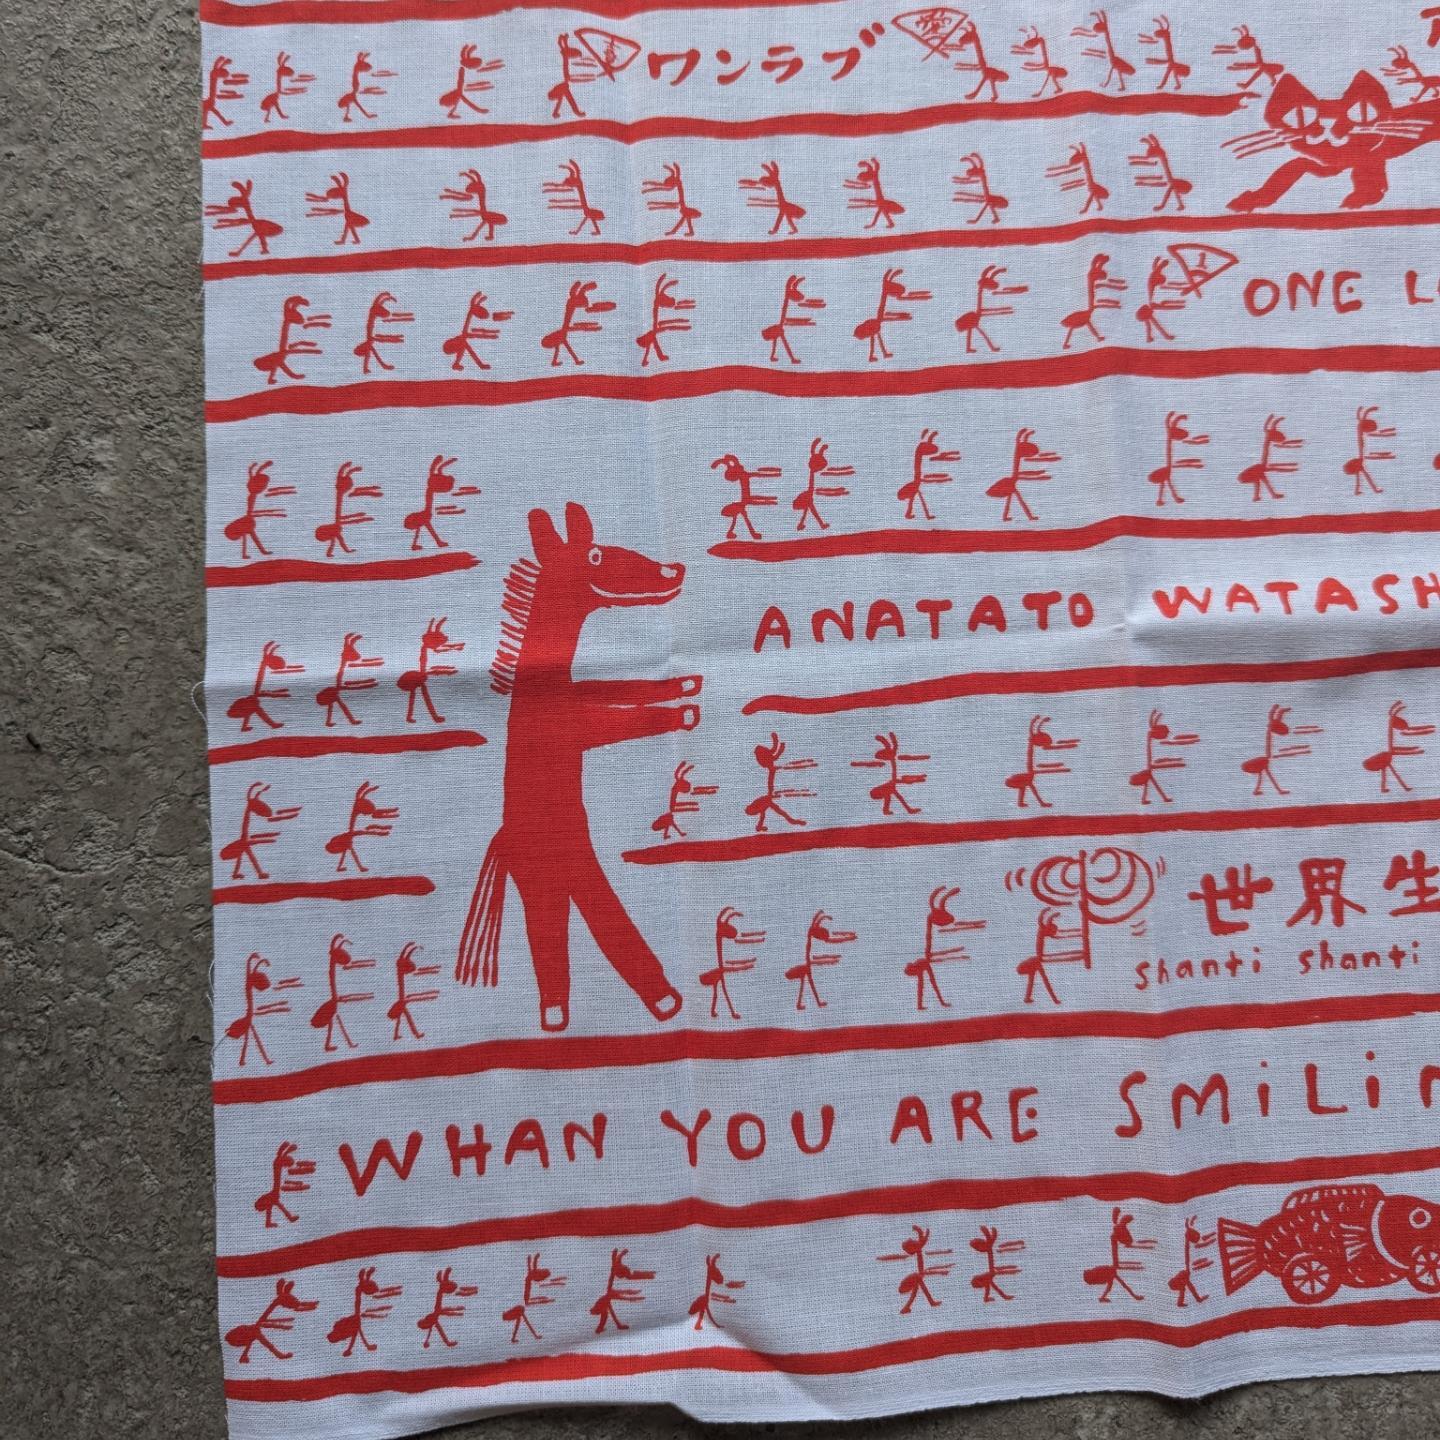 ワンラブ
ONE L
ANATATO WATASH
世界生
shanti shanti
WHAN YOU ARE SMiLi